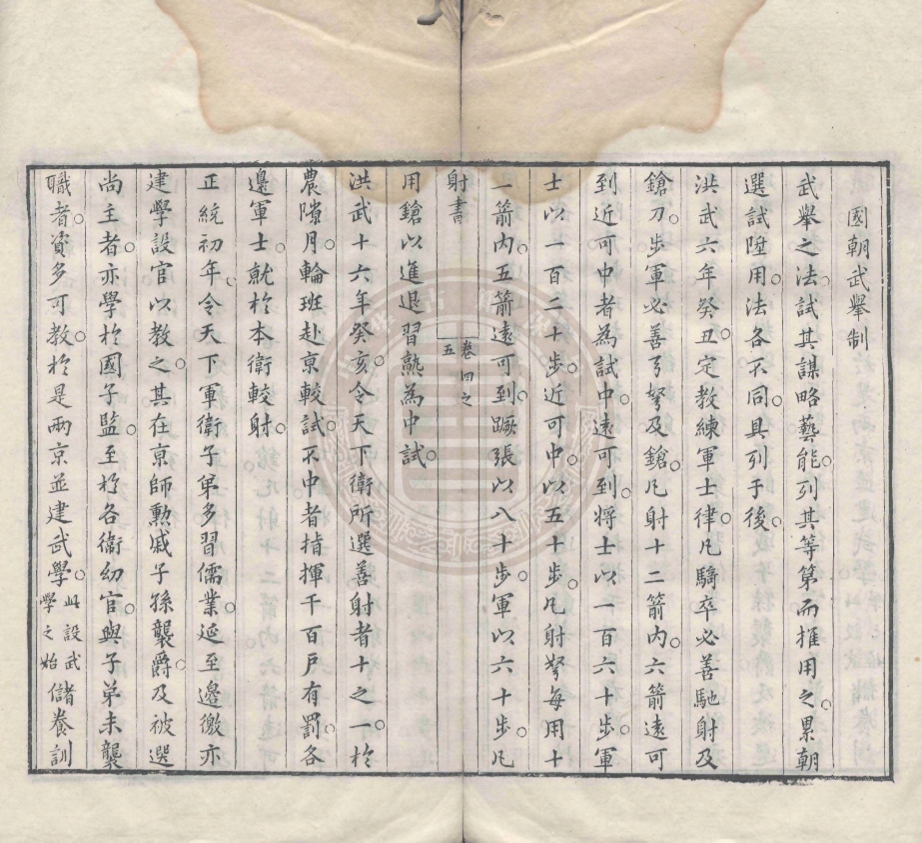 國朝武舉制
武舉之法試其謀略藝能列其等第而擢用之累朝
選試陞用法各不同具列于後
洪武六年癸丑定教練軍士律凡騎卒必善馳射及
鎗刀步軍必善弓弩及鎗凡射十二箭內六箭遠可
到近可中者為試中遠可到將士以一百六十步軍
士以一百二十步近可中以五十步凡射弩每用十
一箭內五箭遠可到蹶張以八十步軍以六十步凡
射書
卷四之
五
用鎗以進退習熟為中試
洪武十六年癸亥令天下衛所選善射者十之一於
農隙月輪班赴京較試不中者指揮千百戶有罰各
邊軍士就於本衛較射
正統初年令天下軍衛子弟多習儒業延至邊徼亦
建學設官以教之其在京師勳戚子孫襲爵及被選
尚主者亦學於國子監至於各衛幼官與子弟未襲
職者資多可教於是兩京並建武學此設武學之始儲養訓